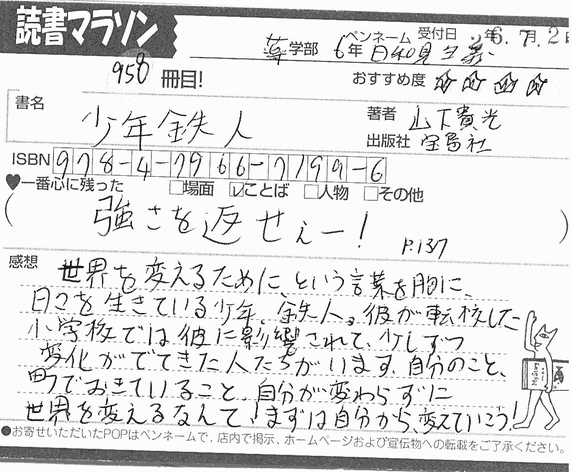 読書マラソン
薬学部 6年 ペンネーム 日和見主義 受付日 2年6月2日
958冊目! おすすめ度
書名 少年鉄人
著者 山下貴光
出版社 宝島社
ISBN 978-4-7966-7199-6
♥一番心に残った □場面 ☑ことば □人物 □その他
( 強さを返せぇー! P.137 )
感想 世界を変えるために、という言葉を胸に、
日々を生きている少年、鉄人。彼が転校した
小学校では彼に影響されて、少しずつ
変化がでてきた人たちがいます。自分のこと、
町でおきていること、自分が変わらずに
世界を変えるなんて!まずは自分から、変えていこう!
●お寄せいただいたPOPはペンネームで、店内で掲示、ホームページおよび宣伝物への転載をご了承ください。